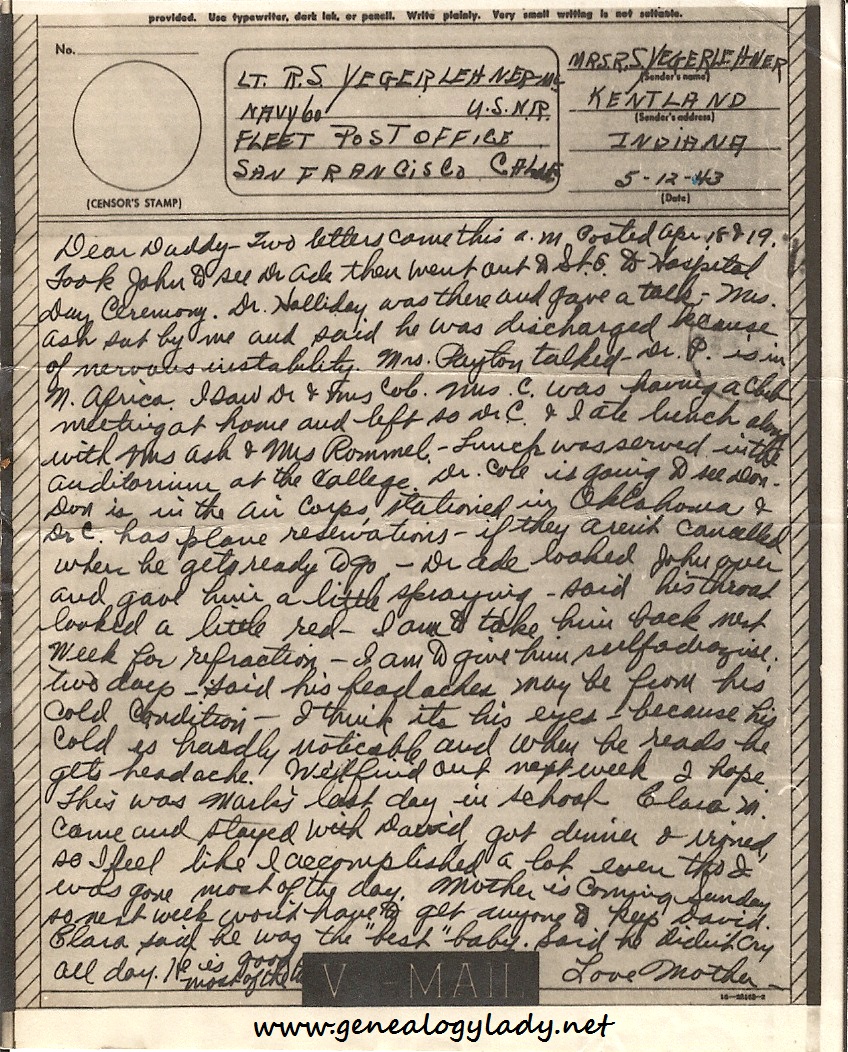 provided. Use typewriter, dark ink, or pencil. Write plainly. Very small writing is not suitable.
No.
(CENSOR'S STAMP)
LT. R.S. YEGERLEHNER-MC
NAVY 60 U.S.N.R.
FLEET POST OFFICE
SAN FRANCISCO CALIF
MRS R.S YEGERLEHNER
(Sender's name)
KENTLAND
(Sender's address)
INDIANA
5-12-43
(Date)
Dear Daddy - Two letters came this a.m. Posted Apr 18 & 19.
Took John to see Dr Ade then went out to St. E. to Hospital
Day Ceremony. Dr. Holliday was there and gave a talk - Mrs.
Ash sat by me and said he was discharged because
of nervous instability. Mrs. Payton talked - Dr. P. is in
N. Africa. I saw Dr & Mrs Cole. Mrs. C. was having a Club
meeting at home and left so Dr C. & I ate lunch along
with Mrs Ash & Mrs Rommel. - Lunch was served in the
auditorium at the College. Dr. Cole is going to see Don -
Don is in the Air Corps stationed in Oklahoma &
Dr C. has plane reservations - if they aren't cancelled
when he gets ready to go - Dr Ade looked John over
and gave him a little spraying - said his throat
looked a little red - I am to take him back next
week for refraction - I am to give him sulfadiazine
two days - said his headaches may be from his
cold condition - I think its his eyes - because his
cold is hardly noticable and when he reads he
gets headache. We'll find out next week I hope.
This was Mark's last day in school Clara M.
came and stayed with David, got dinner & ironed,
so I feel like I accomplished a lot even tho I
was gone most of the day. Mother is coming Sunday
so next week won't have to get anyone to keep David.
Clara said he was the "best" baby. Said he didn't cry
all day. He is good
most of the
Love Mother -
V - MAIL
16-28143-2
www.genealogylady.net